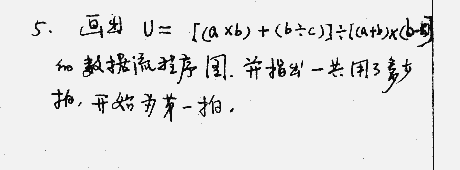 5. 画出 U= [(a×b)+(b÷c)]÷[(a+b)×(b-
的数据流程序图. 并指出一共用了多少
拍, 开始为第一拍.